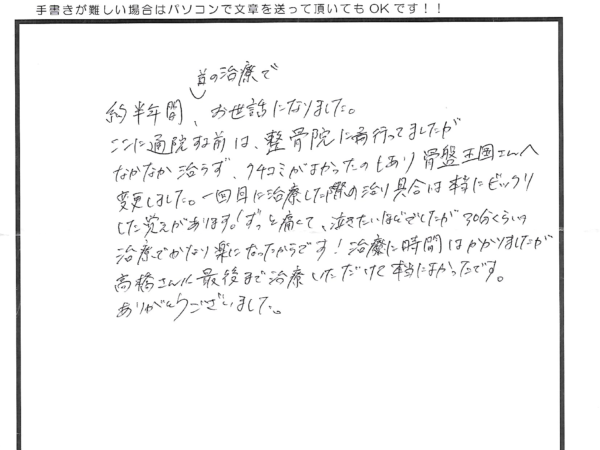 手書きが難しい場合はパソコンで文章を送って頂いてもOKです!!
首の治療で
約半年間、お世話になりました。
ここに通院する前は、整骨院に行ってましたが
なかなか治らず、クチコミがよかったのもあり骨盤王国さんへ
変更しました。一回目に治療した際の治り具合は本当にビックリ
した覚えがあります。ずっと痛くて、泣きたいほどでしたが30分くらいの
治療でかなり楽になったからです!治療に時間はかかりましたが
高橋さんに最後まで治療いただけて本当によかったです。
ありがとうございました。